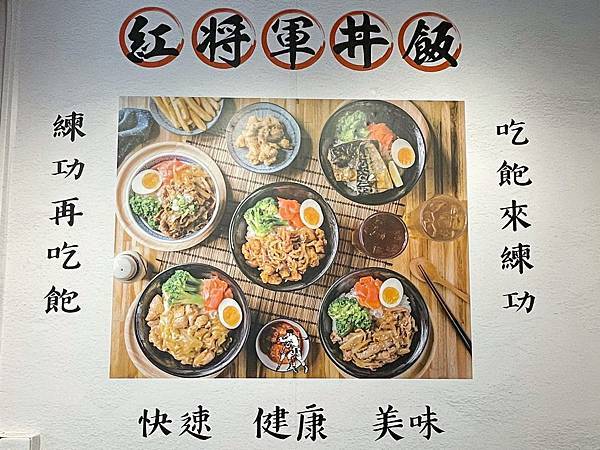 紅將軍丼飯
吃飽來練功
練功再吃飽
快速 健康 美味